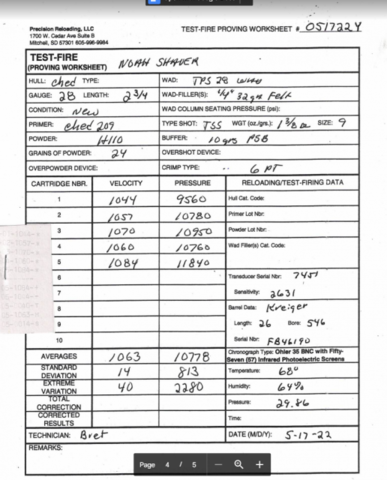 Precision Reloading, LLC
1700 W. Cedar Ave Suite B
Mitchell, SD 57301 605-996-9984
TEST-FIRE PROVING WORKSHEET # 051722Y
TEST-FIRE
(PROVING WORKSHEET)
NOAH SHAVER
HULL: Ched TYPE:
WAD: TPS 28
GAUGE: 28 LENGTH: 2 3/4
WAD-FILLER(S): 1/4" 32 ga Felt
CONDITION: New
WAD COLUMN SEATING PRESSURE (psi):
PRIMER: Ched 209
TYPE SHOT: TSS WGT (oz./grs.): 1 3/8 oz SIZE: 9
POWDER: H110
BUFFER: 10 grs PSB
GRAINS OF POWDER: 24
OVERSHOT DEVICE:
OVERPOWDER DEVICE:
CRIMP TYPE: 6 PT
CARTRIDGE NBR. VELOCITY PRESSURE RELOADING/TEST-FIRING DATA
1 1044 9560 Hull Cat. Code:
2 1057 10780 Primer Lot Nbr:
3 1070 10950 Powder Lot Nbr:
4 1060 10760 Wad Filler(s) Cat. Code:
5 1084 11840
6 Transducer Serial Nbr: 7451
7 Sensitivity: 2631
8 Barrel Data: Kreiger
9 Length: 26 Bore: 546
10 Serial Nbr: FB46190
AVERAGES 1063 10778
Chronograph Type: Ohler 35 BNC with Fifty-
Seven (57) Infrared Photoelectric Screens
STANDARD
DEVIATION 14 813 Temperature: 68°
EXTREME
VARIATION 40 2280 Humidity: 64%
TOTAL
CORRECTION Pressure: 29.86
CORRECTED
RESULTS Time:
TECHNICIAN: Bret DATE (M/D/Y): 5-17-22
REMARKS:
Page 4 / 5 − +